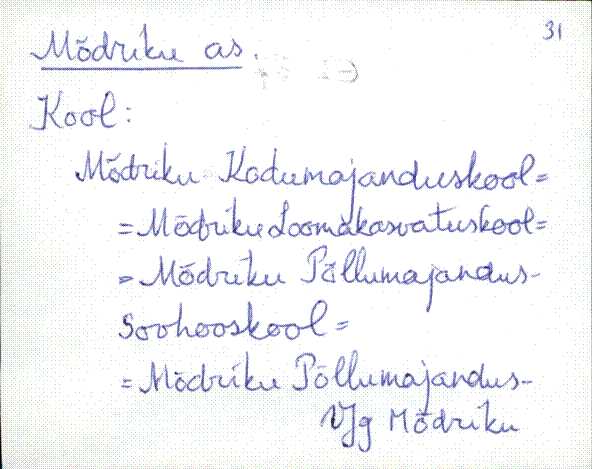 31
Mõdriku as.
Kool:
Mõdriku Kodumajanduskool=
=Mõdriku Loomakasvatuskool=
=Mõdriku Põllumajandus-
Sovhooskool=
=Mõdriku Põllumajandus-
Mõdriku